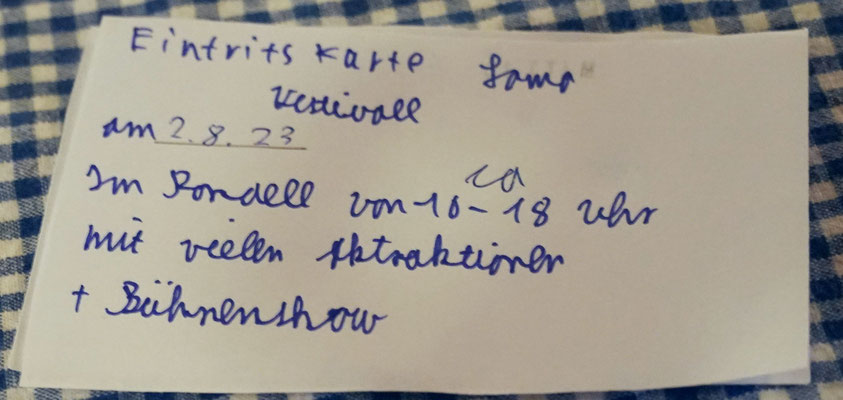 Eintrits Karte Lama
Vestivall
am 2.8.23
Im Rondell von 10- ca 18 Uhr
mit vielen Aktraktionen
+ Bühnenshow